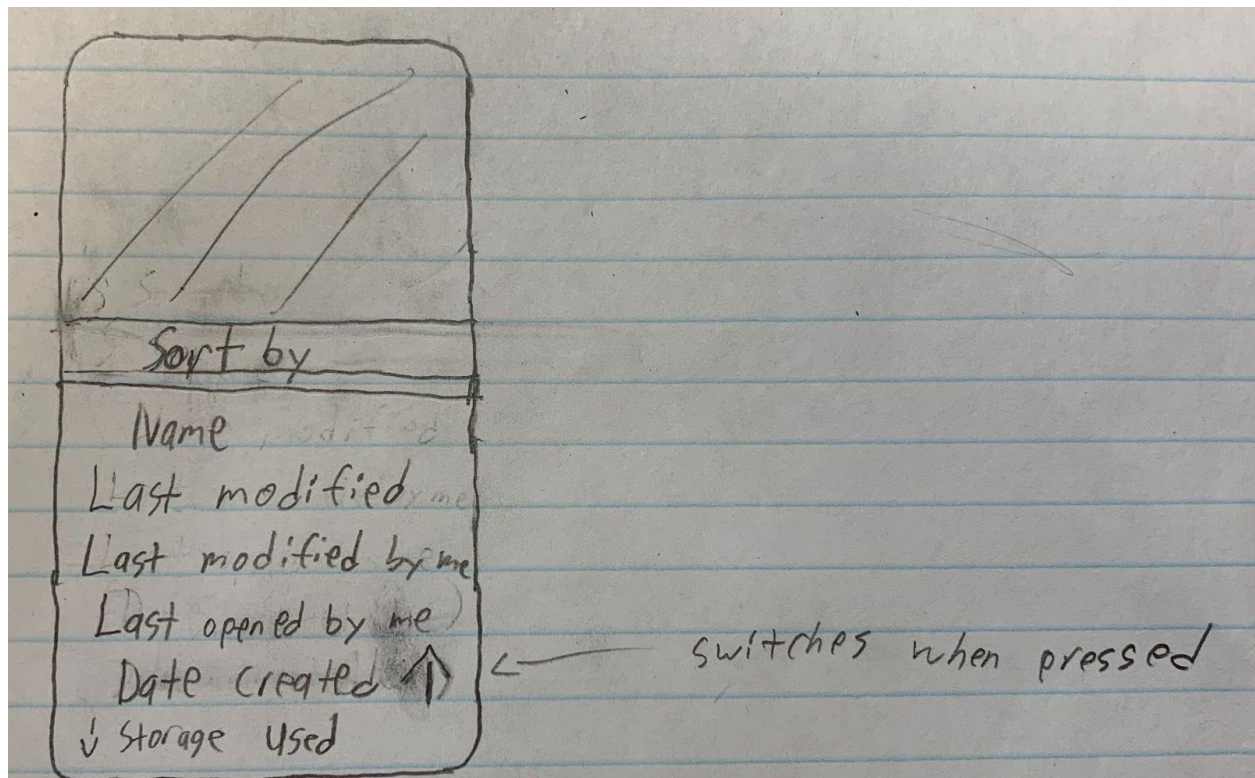 Sort by
Name
Last modified
Last modified by me
Last opened by me
Date created ↑
switches when pressed
↓ Storage used